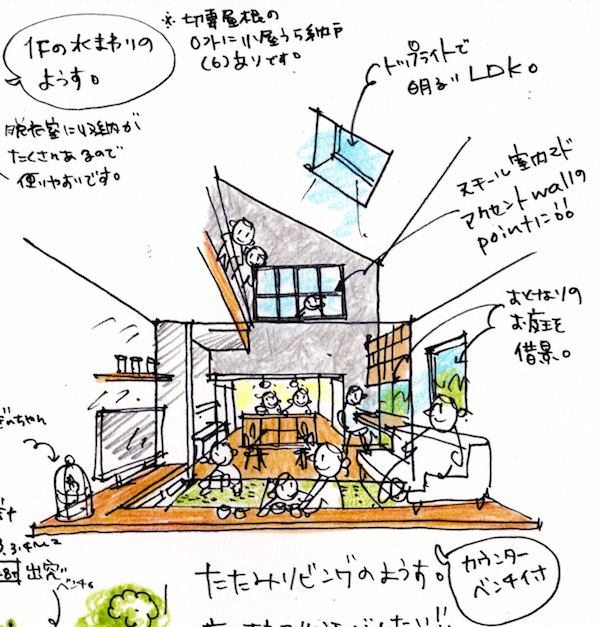 1Fの水まわりの
ようす。
※切妻屋根の
ロフトに小屋うら納戸
(6)ありです。
トップライトで
明るいLDK。
脱衣室に収納が
たくさんあるので
便りやすいです。
スチール室内マド
アクセントwallの
pointに!!
おとなりの
お庭を
借景。
ちゃん
3.4M2
出窓
ベンチ。
たたみリビングのようす。
カウンター
ベンチ付